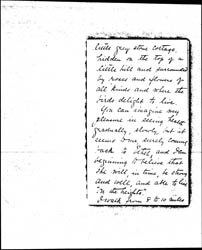 little grey stone cottage,
hidden on the top of a
little hill and surrounded
by roses and flowers of
all kinds and where the
birds delight to live.
You can imagine my
pleasure in seeing health
gradually, slowly, but it
seems to me, surely coming
back to Ethel, and I am
beginning to believe that
she will, in time, be strong
and well, and able to live
"on the heights."
I walk from 8 to 10 miles